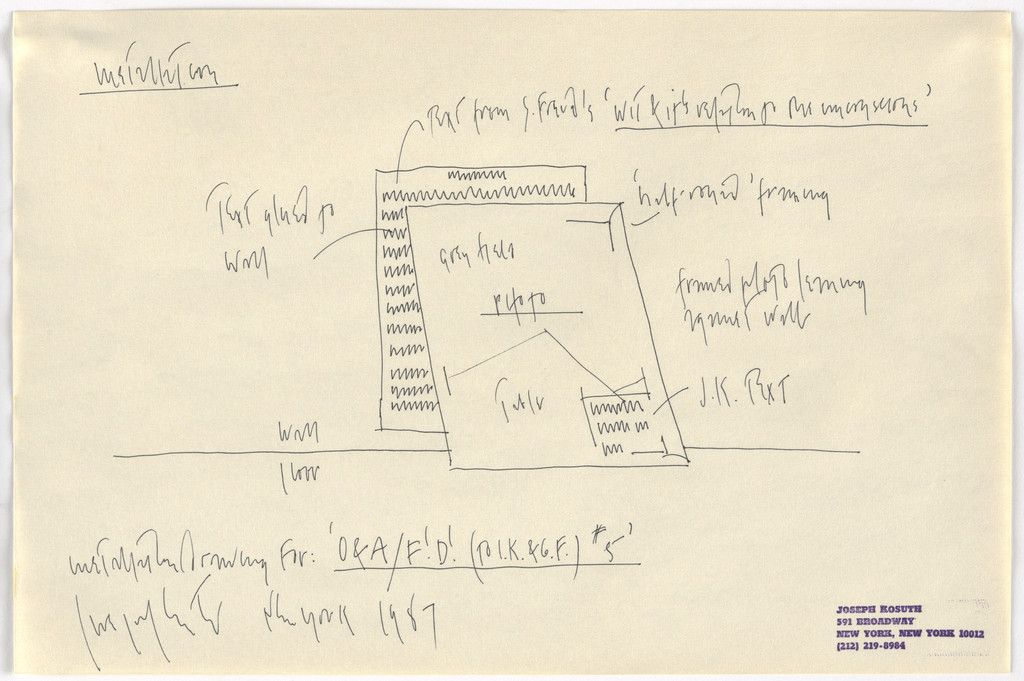 installation
Text from S. Freud's 'Wit & it's relation to the unconscious'
'half-round' framing
Text glued to
Wall
grey field
PHOTO
framed photo leaning
against wall
Table
J.K. TEXT
Wall
floor
installation drawing for: 'O&A/F!D! (to I.K. & G.F.) #5'
New York 1987
JOSEPH KOSUTH
591 BROADWAY
NEW YORK, NEW YORK 10012
(212) 219-8984